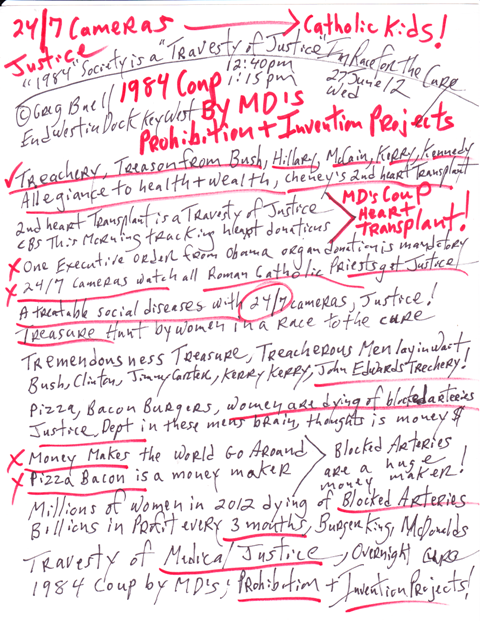 24/7 Cameras → Catholic Kids!
Justice
"1984" Society is a "Travesty of Justice" In Race for the Cure
12:40pm
1:15pm
27 June 12
Wed
© Greg Buell
1984 Coup
End West in Dock Key West
By MD's
Prohibition + Invention Projects
✓ Treachery, Treason from Bush, Hillary, McCain, Kerry, Kennedy
Allegiance to health + wealth, Cheney's 2nd heart Transplant
2nd heart Transplant is a Travesty of Justice
CBS This Morning tracking heart donations
MD's Coup
Heart
Transplant!
x One Executive order from Obama organ donation is mandatory
x 24/7 Cameras watch all Roman Catholic Priests get Justice
A treatable social diseases with 24/7 cameras, Justice!
Treasure Hunt by women in a Race to the cure
Tremendousness Treasure, Treacherous Men lay in wait
Bush, Clinton, Jimmy Carter, Kerry Kerry, John Edwards Trechery!
Pizza, Bacon Burgers, women are dying of blocked arteries
Justice Dept in these mens brain, thoughts is money $
x Money Makes the World Go Around
x Pizza Bacon is a money maker
Blocked Arteries
are a huge
money maker!
Millions of women in 2012 dying of Blocked Arteries
Billions in Profit every 3 months, Burger King, McDonalds
Travesty of Medical Justice, Overnight cure
1984 Coup by MD's; Prohibition + Invention Projects!